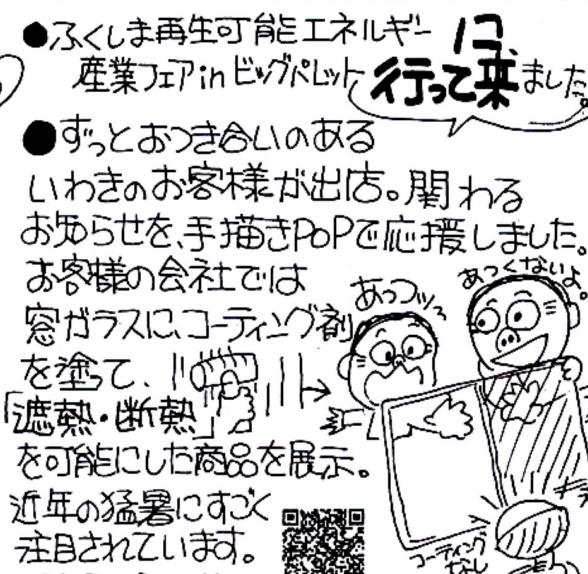 ●ふくしま再生可能エネルギー
産業フェアinビッグパレット
行って来ました。
●ずっとおつき合いのある
いわきのお客様が出店。関わる
お知らせを、手描きPoPで応援しました。
お客様の会社では
窓ガラスに、コーティング剤
を塗って、
「遮熱・断熱」
を可能にした商品を展示。
近年の猛暑にすごく
注目されています。
あっつッ、
あつくないよ。
コーティング
なし